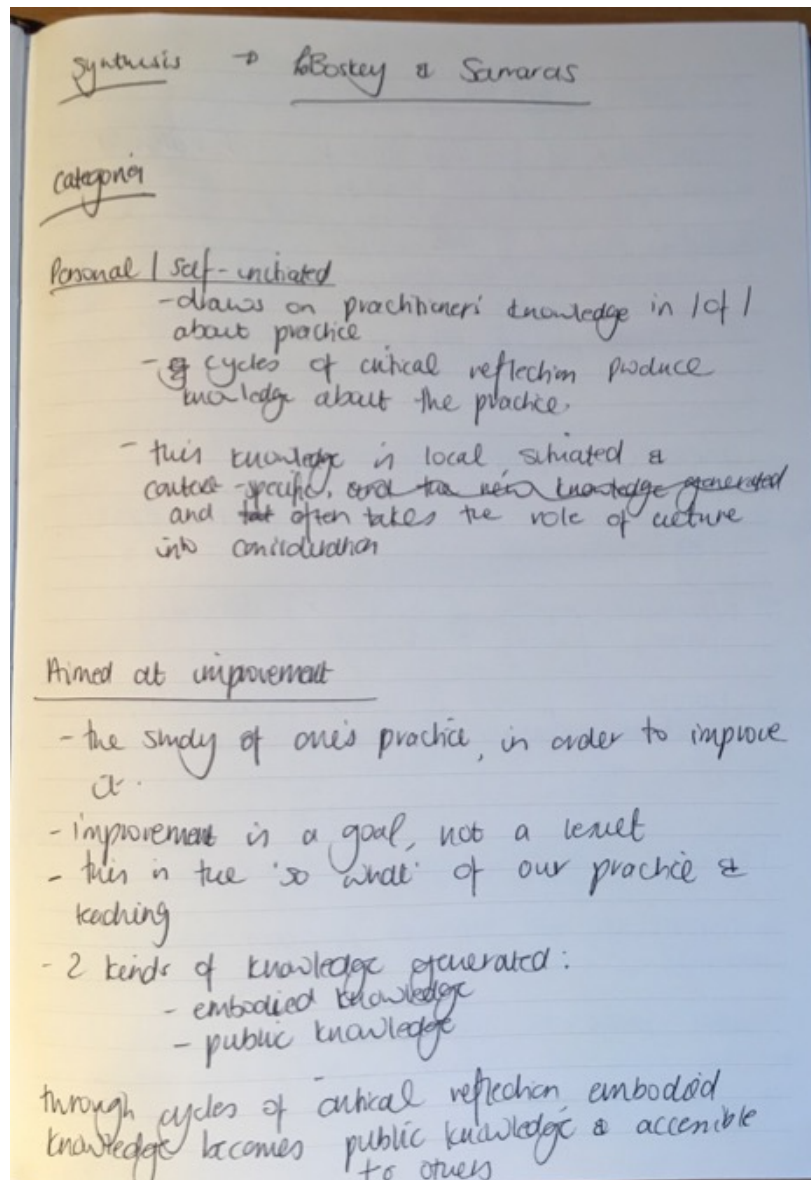 Synthesis → LaBoskey & Samaras
Categories
Personal / Self-initiated
- draws on practitioners' knowledge in / of /
about practice
- cycles of critical reflection produce
knowledge about the practice.
- this knowledge is local situated &
context-specific, and the new knowledge generated
and often takes the role of culture
into consideration
Aimed at improvement
- the study of one's practice, in order to improve
it.
- improvement is a goal, not a result
- this is the 'so what' of our practice &
teaching
- 2 kinds of knowledge generated:
- embodied knowledge
- public knowledge
through cycles of critical reflection embodied
knowledge becomes public knowledge & accessible
to others